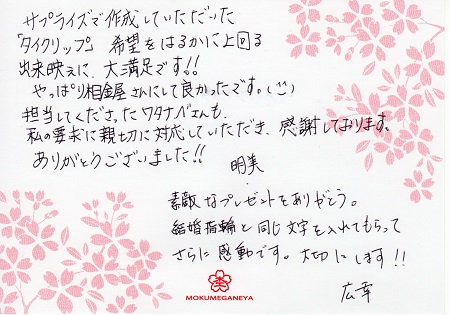 サプライズで作成していただいた
「タイクリップ」 希望をはるかに上回る
出来映えに、大満足です!!
やっぱり杢目金屋さんにして良かったです。(^^)
担当してくださったワタナベさんも、
私の要求に親切に対応していただき、感謝しております。
ありがとうございました!!
明美
素敵なプレゼントをありがとう。
結婚指輪と同じ文字を入れてもらって
さらに感動です。大切にします!!
広幸
MOKUMEGANEYA